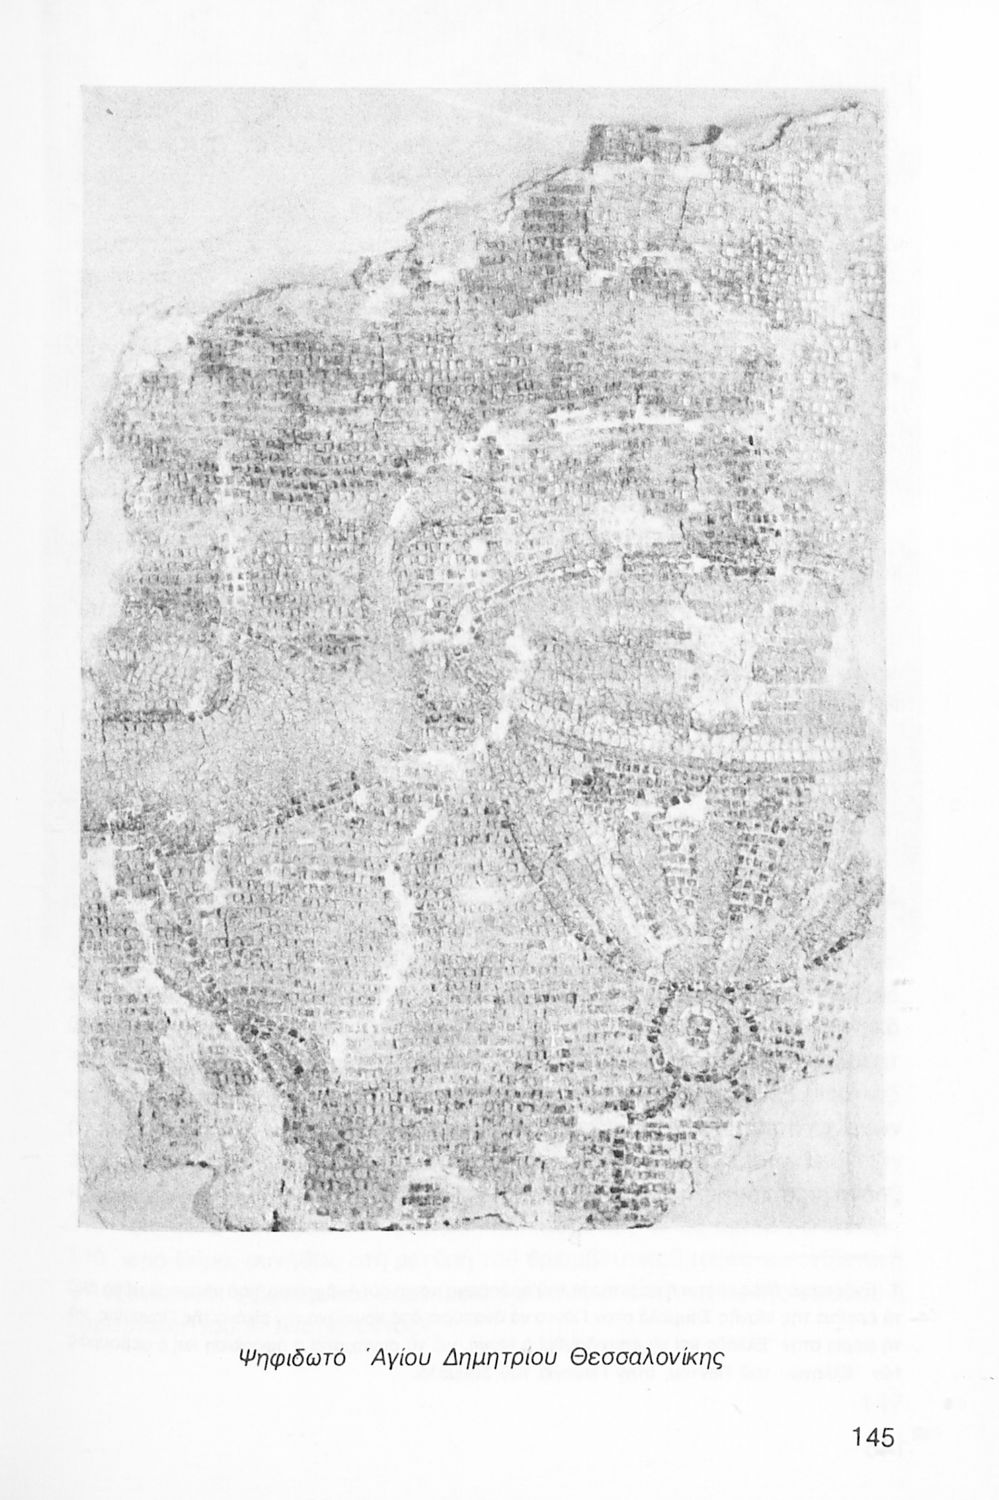 Ψηφιδωτό Ἁγίου Δημητρίου Θεσσαλονίκης
145